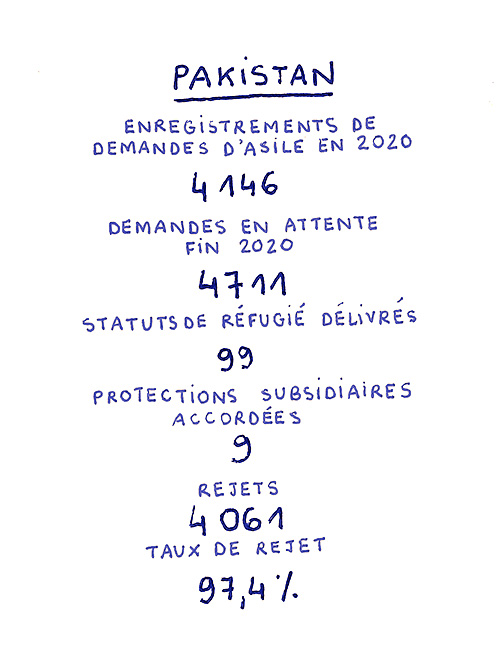 PAKISTAN
ENREGISTREMENTS DE
DEMANDES D'ASILE EN 2020
4 146
DEMANDES EN ATTENTE
FIN 2020
4711
STATUTS DE RÉFUGIÉ DÉLIVRÉS
99
PROTECTIONS SUBSIDIAIRES
ACCORDÉES
9
REJETS
4 061
TAUX DE REJET
97,4%